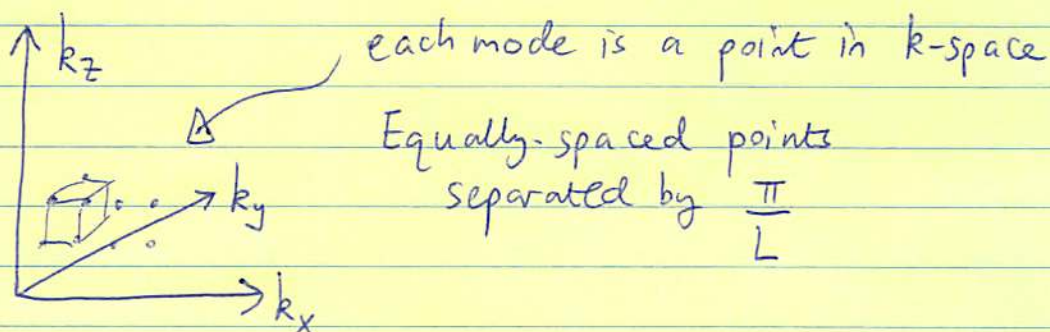 k_z
each mode is a point in k-space
Equally-spaced points
separated by π/L
k_y
k_x